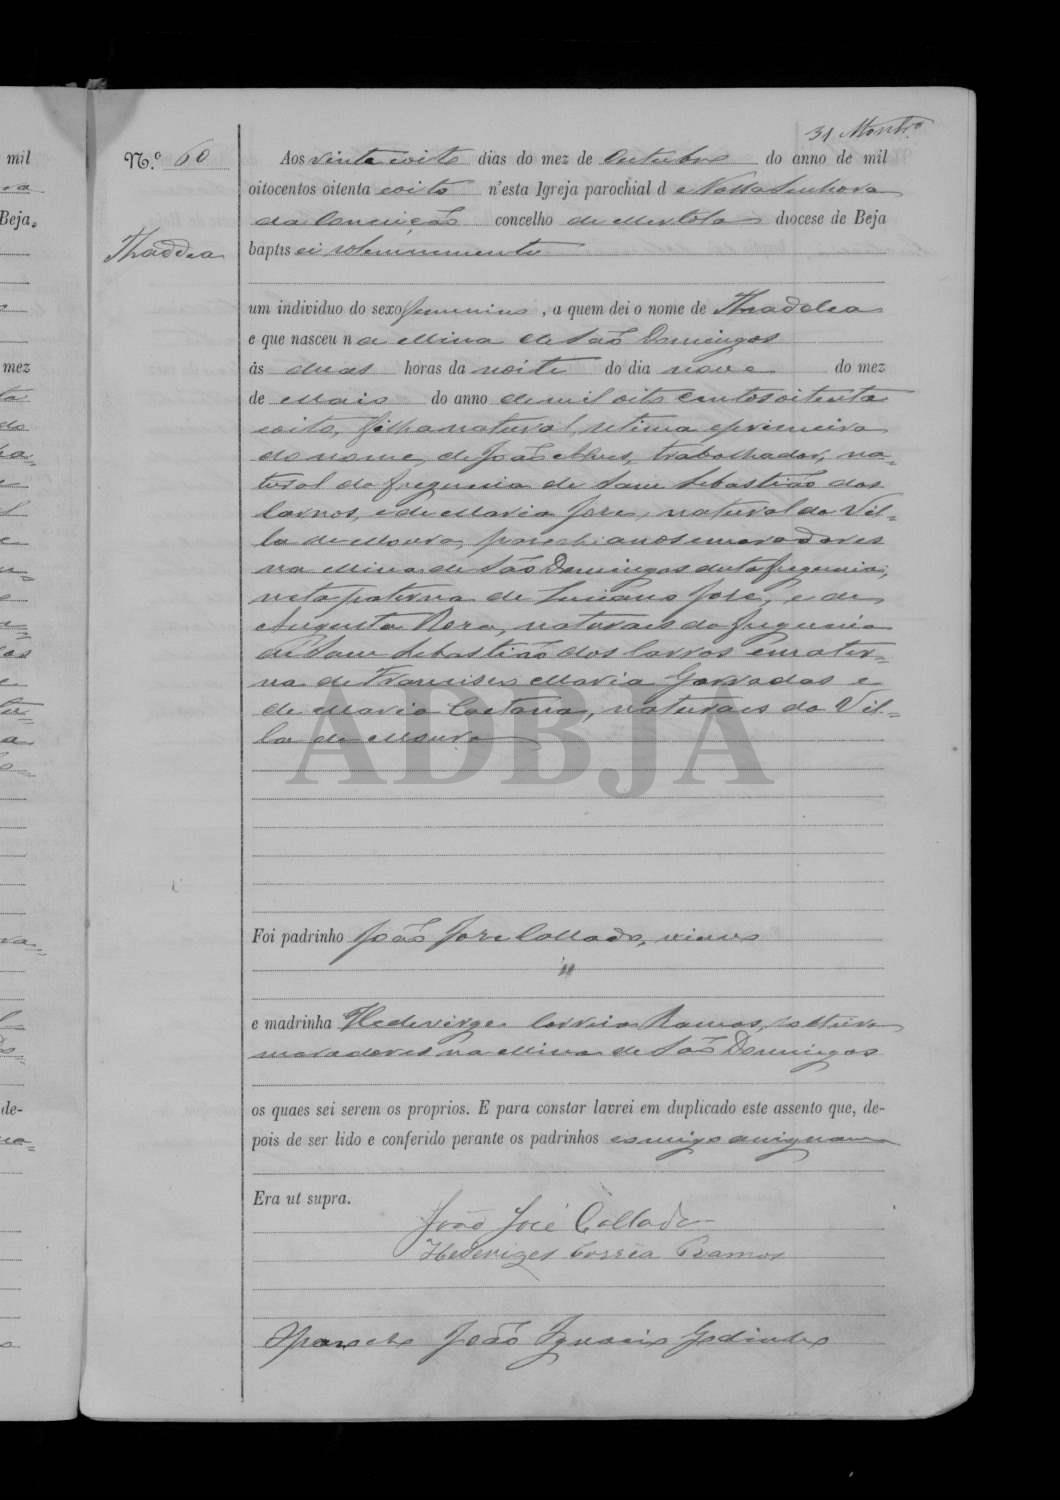 31
N.º 60
Aos vinte e oito dias do mez de Outubro do anno de mil
oitocentos oitenta e oito n'esta Igreja parochial de Nossa Senhora
da Conceição concelho de Mertola diocese de Beja
Thaddea
baptisei solemnemente
um individuo do sexo femenino, a quem dei o nome de Thaddea
e que nasceu na Mina de São Domingos
ás duas horas da noite do dia nove do mez
de Maio do anno de mil oito centos oitenta
e oito, filha natural, setima e primeira
do nome, de João Alves, trabalhador, na-
tural da freguesia de Sam Sebastião dos
Carros, e de Maria José, natural da Vil-
la de Moura, parochianos e moradores
na Mina de São Domingos desta freguesia,
neta paterna de Luciano José, e de
Augusta Rosa, naturaes da freguesia
de Sam Sebastião dos Carros e mater-
na de Francisco Maria e
de Maria Caetana, naturaes da Vil-
la de Moura
ADBJA
Foi padrinho João José Collado, viuvo
e madrinha Hedeviges Correia Ramos, solteira
moradores na Mina de São Domingos
os quaes sei serem os proprios. E para constar lavrei em duplicado este assento que, de-
pois de ser lido e conferido perante os padrinhos comigo assignam
Era ut supra.
João José Collado
Hedeviges Corrêa Ramos
O Parocho João Ignacio Godinho
mil
Beja.
mez
de-